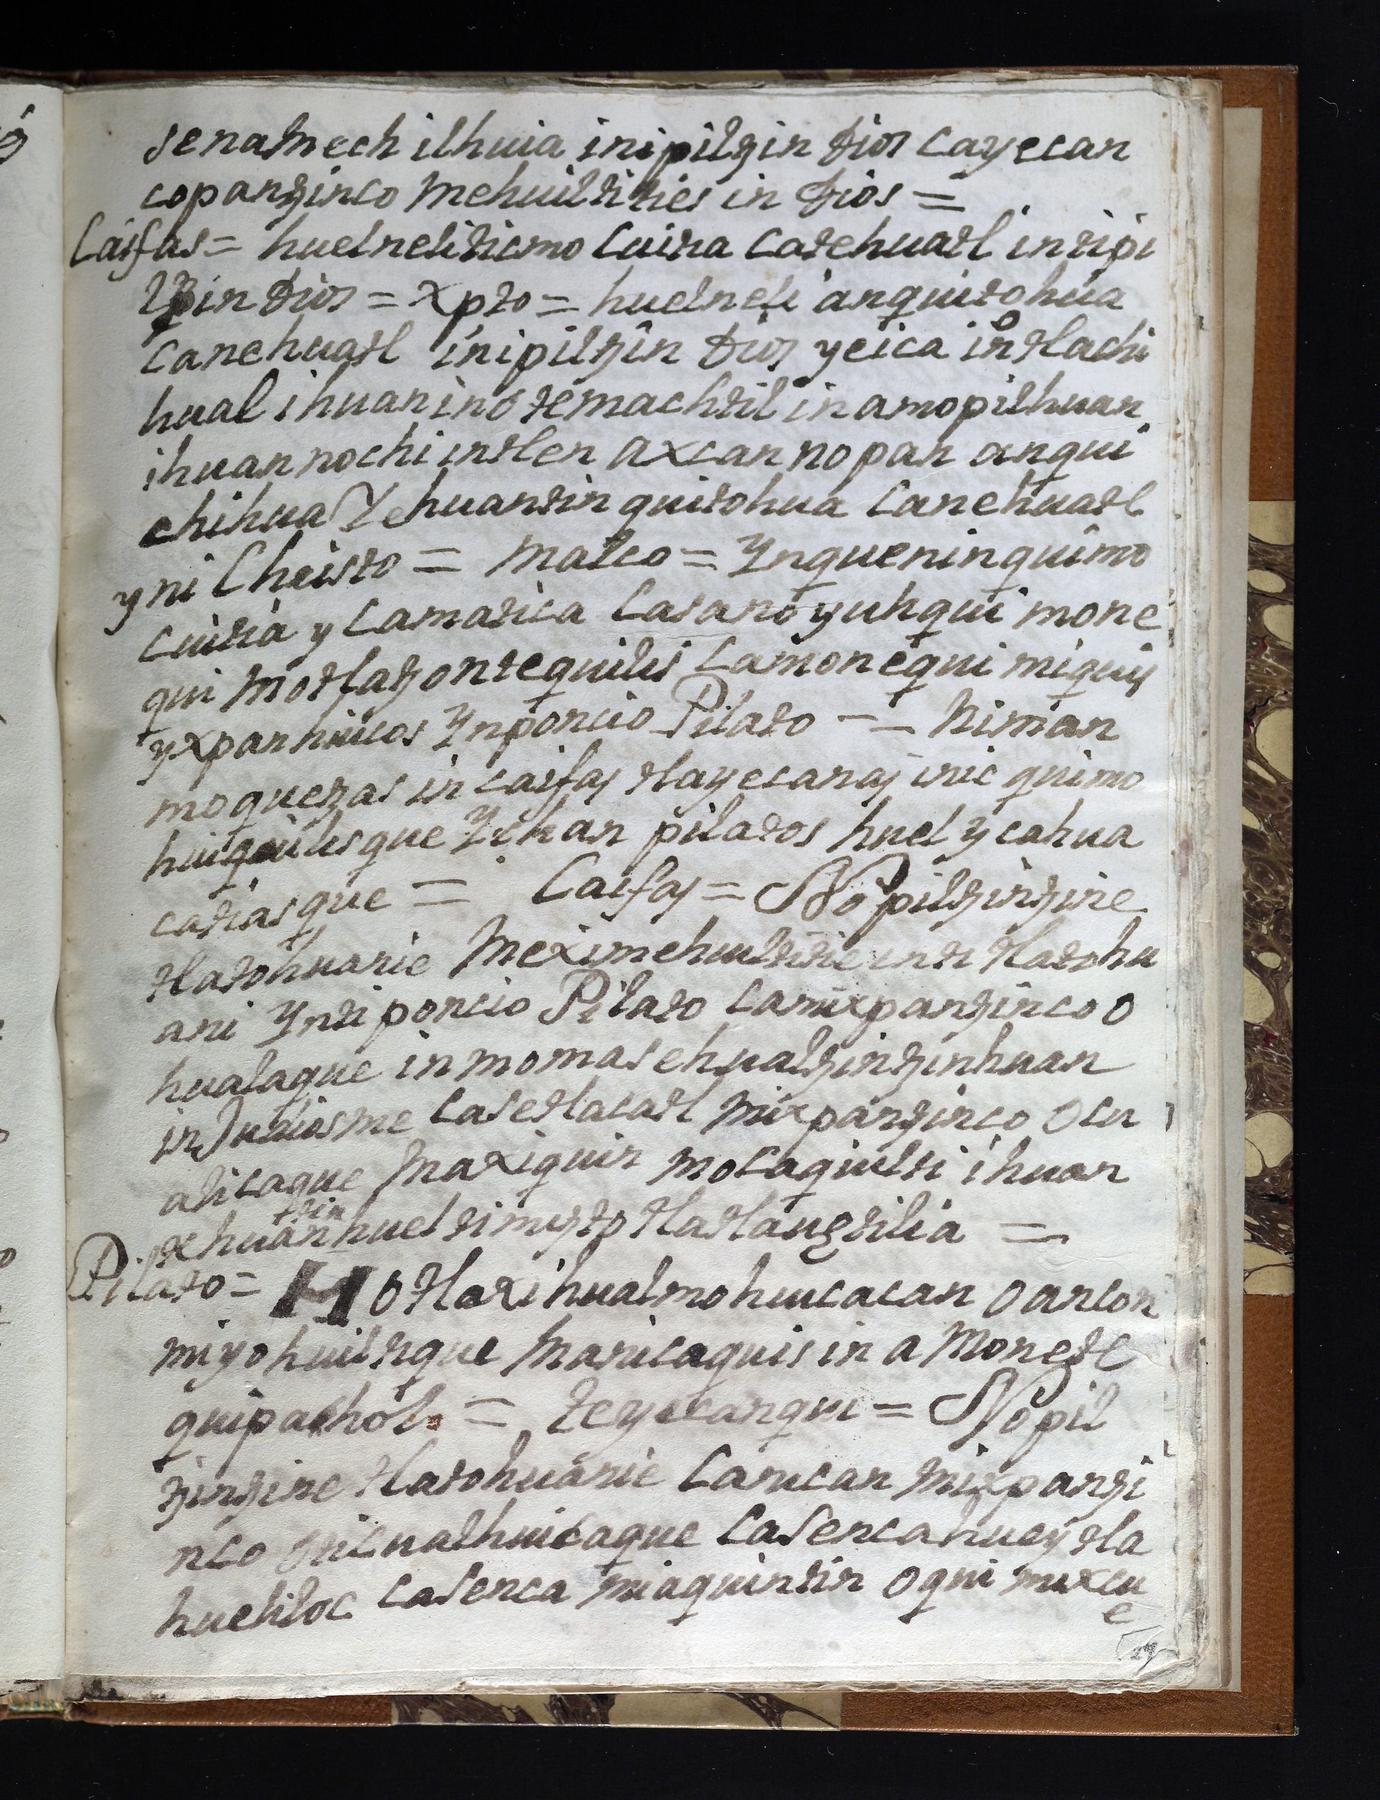 senamech ilhuia inipiltzin Dios cayecan
copantzinco mehuiltities in Dios =
Caifas = huelneliticmo cuitia catehuatl intipi
ltzin Dios = xpto = huelneli anquitohua
canehuatl inipiltzin Dios yeica in notlachi
hual ihuan inotemachtil in amopilhuan
ihuan nochi intlen axcan nopan anqui
chihua Yehuantin quitohua canehuatl
yni Christo = Malco = Ynqueninquimo
cuitia y camatica catano yuhqui mone
qui motlatzontequilis camonequi miquis
yxpanhuicos Ynponcio Pilato — — Niman
moquetzas in caifas tlayecanas inic quimo
huiquilisque Ychan pilatos huel ycahua
catiasque = Caifas = Nopiltzintzine
tlatohuanie Meximehuiltitie inti tlatohu
ani Yntiponcio Pilato camixpantzinco o
hualaque inmomasehualtzintzinhuan
inJudiosme casetlacatl mixpantzinco ocu
alicaque Maxiquin mocaquilti ihuan
tzin
xhuan huel timitztotlatlauhtilia =
Pilato = H Otlaxihualmohuicacan oancon
miyohuiltique Manicaquis in amonetl
quipachol = Teyecanqui = Nopil
tzintzine tlatohuanie canican mixpantzi
nco ticualhuicaque casencahuey tla
hueliloc casenca miaquintin oqui mixcu
e
29